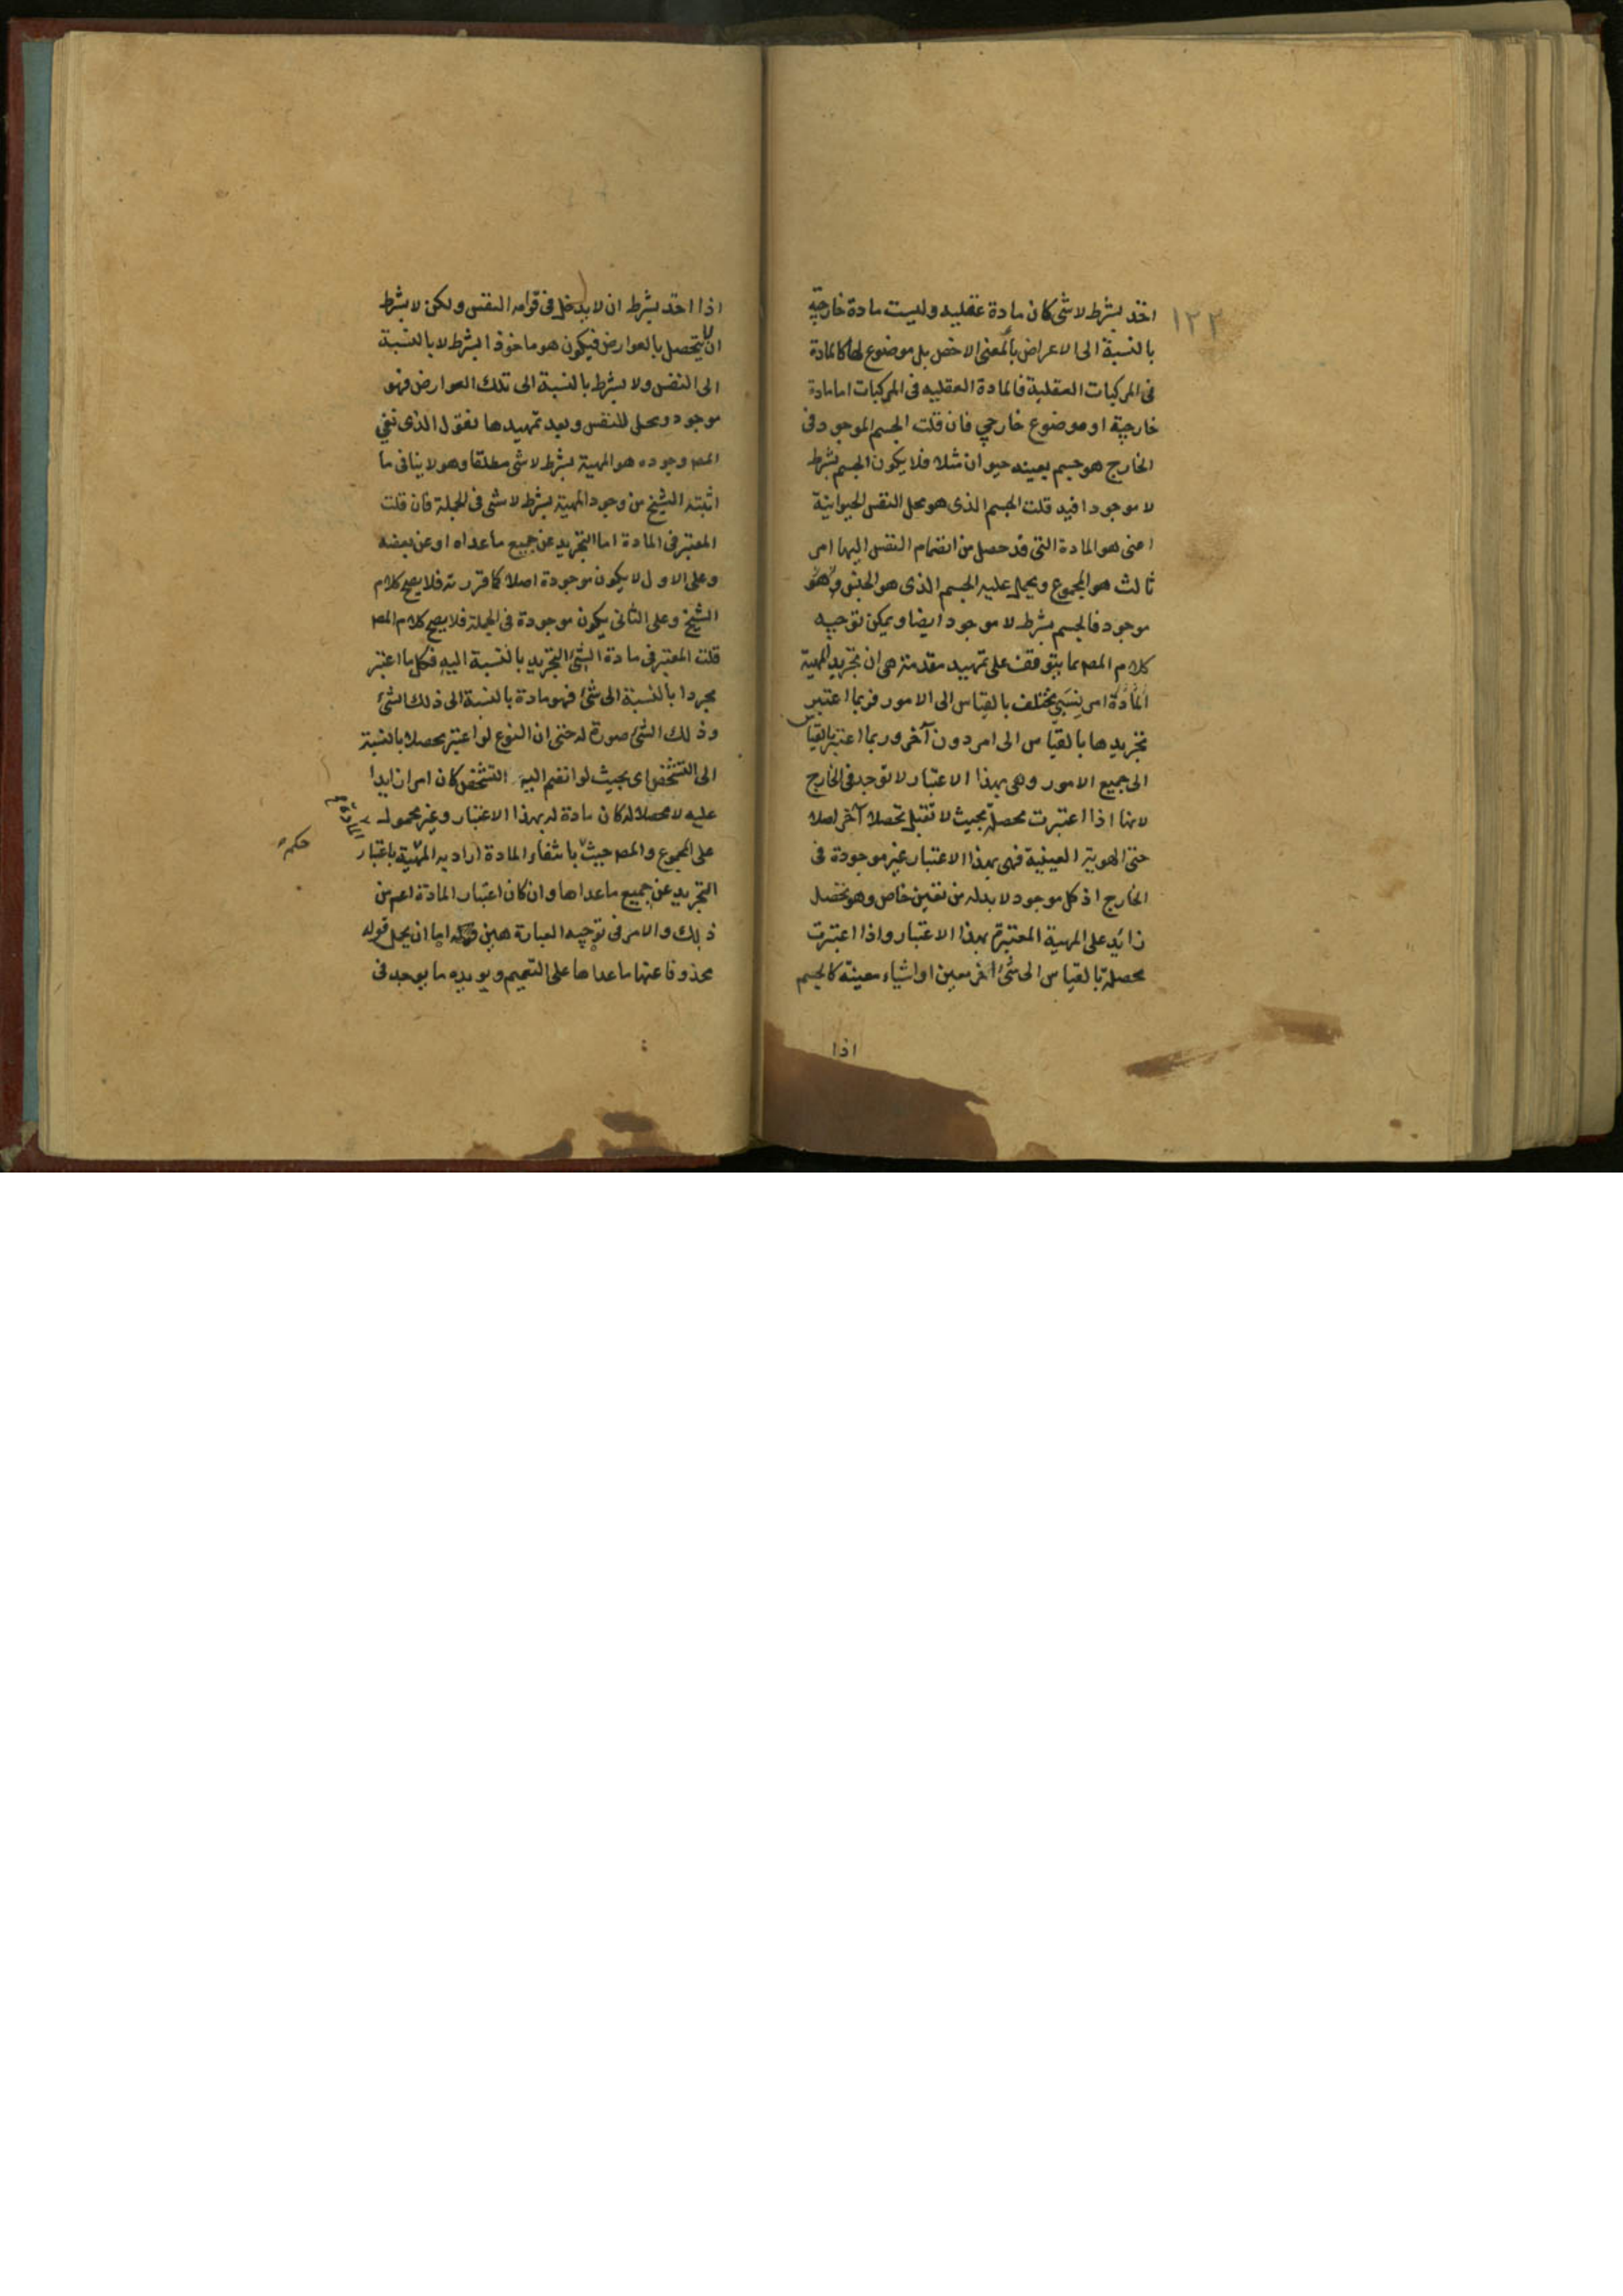 ١٢٢
اخذ بشرط لا شئ كان مادة عقلية وليست مادة خارجية
بالنسبة الى الاعراض بالمعنى الاخص بل موضوع لها كالمادة
فى المركبات العقلية فالمادة العقلية فى المركبات اما مادة
خارجية او موضوع خارجي فان قلت الجسم الموجود فى
الخارج هو جسم بعينه حيوان مثلا فلا يكون الجسم بشرط
لا موجودا فيه قلت الجسم الذى هو محل النفس الحيوانية
اعنى هو المادة التى قد حصل من انضمام النفس اليها امر
ثالث هو المجموع ويحمل عليه الجسم الذى هو الجنس وهو
موجود فالجسم بشرط لا موجود ايضا ويمكن توجيه
كلام المصـ بما يتوقف على تمهيد مقدمة هى ان تجريد المهية
المادة امر نسبي يختلف بالقياس الى الامور فربما اعتبر
تجريدها بالقياس الى امر دون آخر وربما اعتبر بالقياس
الى جميع الامور وهى بهذا الاعتبار لا توجد فى الخارج
لانها اذا اعتبرت محصلة بحيث لا تقبل تحصلا آخر اصلا
حتى الهوية العينية فهى بهذا الاعتبار غير موجودة فى
الخارج اذ كل موجود لا بد له من تعين خاص وهو تحصل
زائد على المهية المعتبرة بهذا الاعتبار واذا اعتبرت
محصلة بالقياس الى شئ آخر معين او اشياء معينة كالجسم
اذا
اذا اخذ بشرط ان لا يدخل فى قوامه النفس ولكن لا بشرط
ان لا يتحصل بالعوارض فيكون هو ماخوذا بشرط لا بالنسبة
الى النفس ولا بشرط بالنسبة الى تلك العوارض فهو
موجود ومحل للنفس وبعد تمهيدها نقول الذى نفى
المصـ وجوده هو المهية بشرط لا شئ مطلقا وهو لا ينافى ما
اثبته الشيخ من وجود المهية بشرط لا شئ فى الجملة فان قلت
المعتبر فى المادة اما التجريد عن جميع ما عداه او عن بعضه
وعلى الاول لا يكون موجودة اصلا كما قررته فلا يصح كلام
الشيخ وعلى الثانى يكون موجودة فى الجملة فلا يصح كلام المصـ
قلت المعتبر فى مادة الشئ التجريد بالنسبة اليه فكل ما اعتبر
مجردا بالنسبة الى شئ فهو مادة بالنسبة الى ذلك الشئ
وذلك الشئ صورة له حتى ان النوع لو اعتبر محصلا بالنسبة
الى التشخص اى بحيث لو انضم اليه التشخص كان امرا زايدا
عليه لا محصلا له كان مادة له بهذا الاعتبار وغير محمول
على المجموع والمصـ حيث بانتفاء المادة اراد به المهية باعتبار
حكم
التجريد عن جميع ما عداها وان كان اعتبار المادة اعم من
ذلك والامر فى توجيه العبارة هين اما ان يحمل قوله
محذوفا عنها ما عداها على التعميم ويويده ما يوجد فى